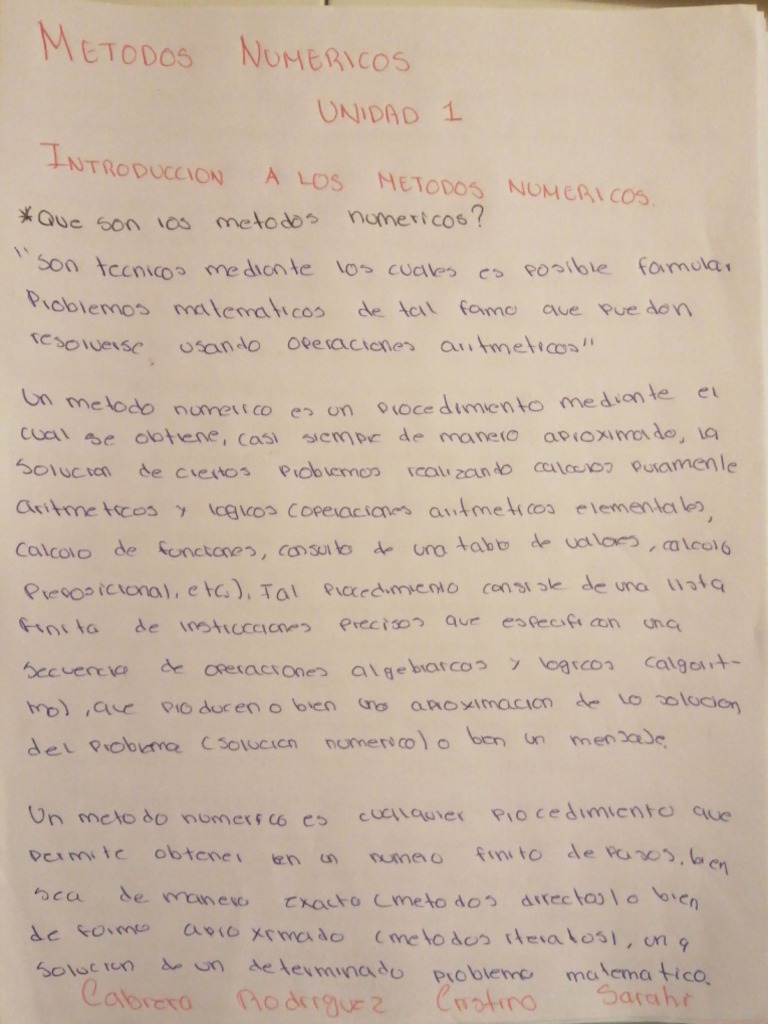 METODOS NUMERICOS
UNIDAD 1
INTRODUCCION A LOS METODOS NUMERICOS.
*Que son los metodos numericos?
"son tecnicos mediante los cuales es posible formular
Problemas matematicos de tal forma que puedan
resolverse usando operaciones aritmeticos"
Un metodo numerico es un procedimiento mediante el
cual se obtiene, casi siempre de manera aproximado, la
solucion de ciertos problemas realizando calculos puramente
aritmeticos y logicos (operaciones aritmeticos elementales,
calculo de funciones, consulta de una tabla de valores, calculo
preposicional, etc.), Tal procedimiento consiste de una lista
finita de instrucciones precisos que especifican una
secuencia de operaciones algebraicos y logicos (algorit-
mo), que producen o bien una aproximacion de la solucion
del problema (solucion numerico) o bien un mensaje.
Un metodo numerico es cualquier procedimiento que
permite obtener en un numero finito de pasos, bien
sea de manera exacta (metodos directos) o bien
de forma aproximado (metodos iteratos), una
solucion de un determinado problema matematico.
Cabrera Rodriguez Cristina Sarahi